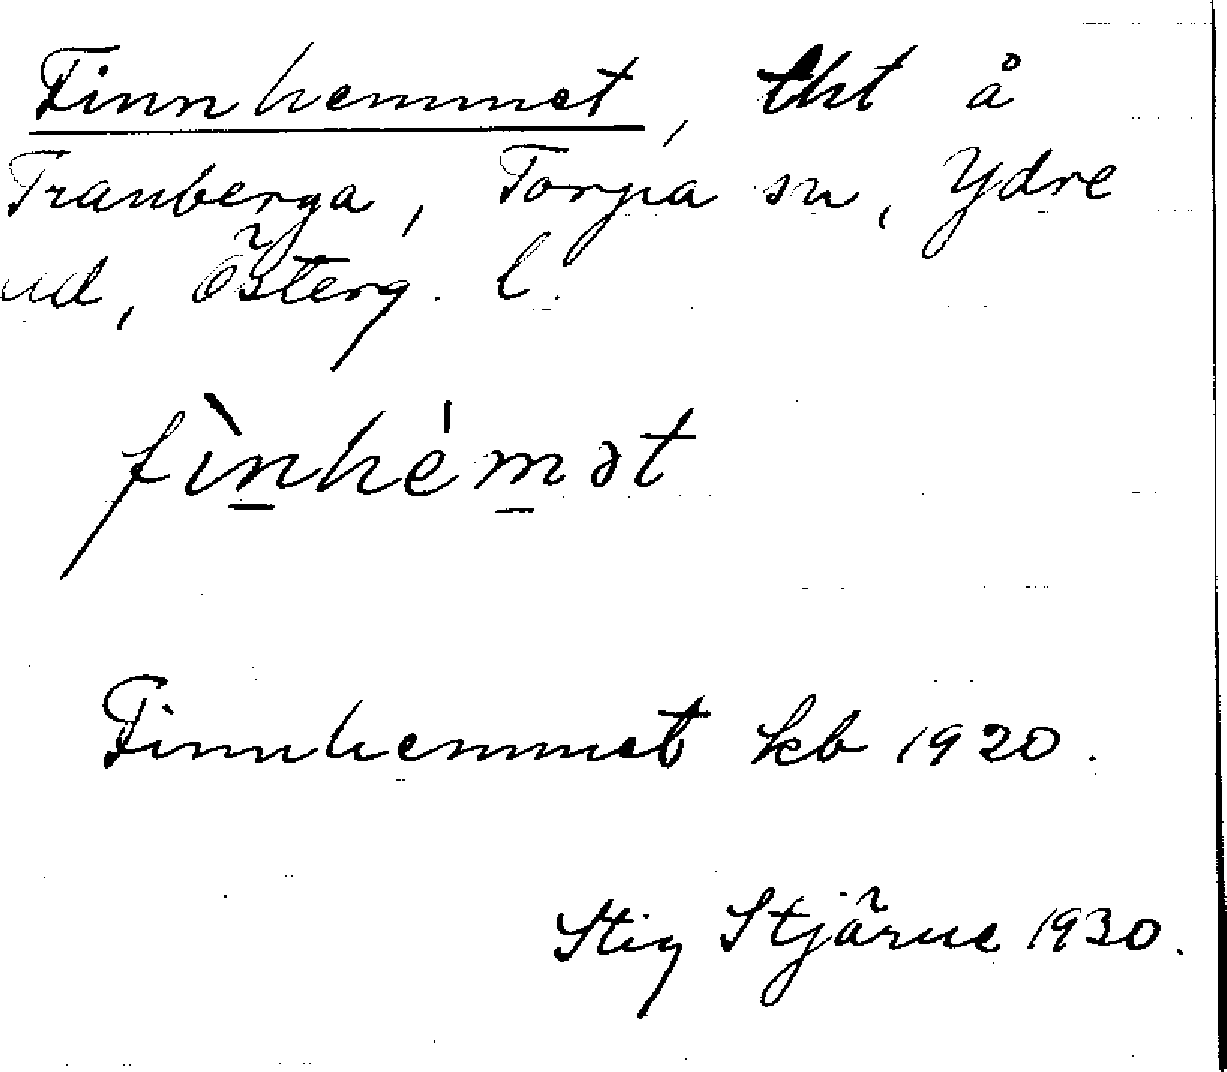 Finnhemmet, tht å
Tranberga, Torpa sn, Ydre
hd, Österg. l.
fìnhémət
Finnhemmet kb 1920.
Stig Stjärne 1930.